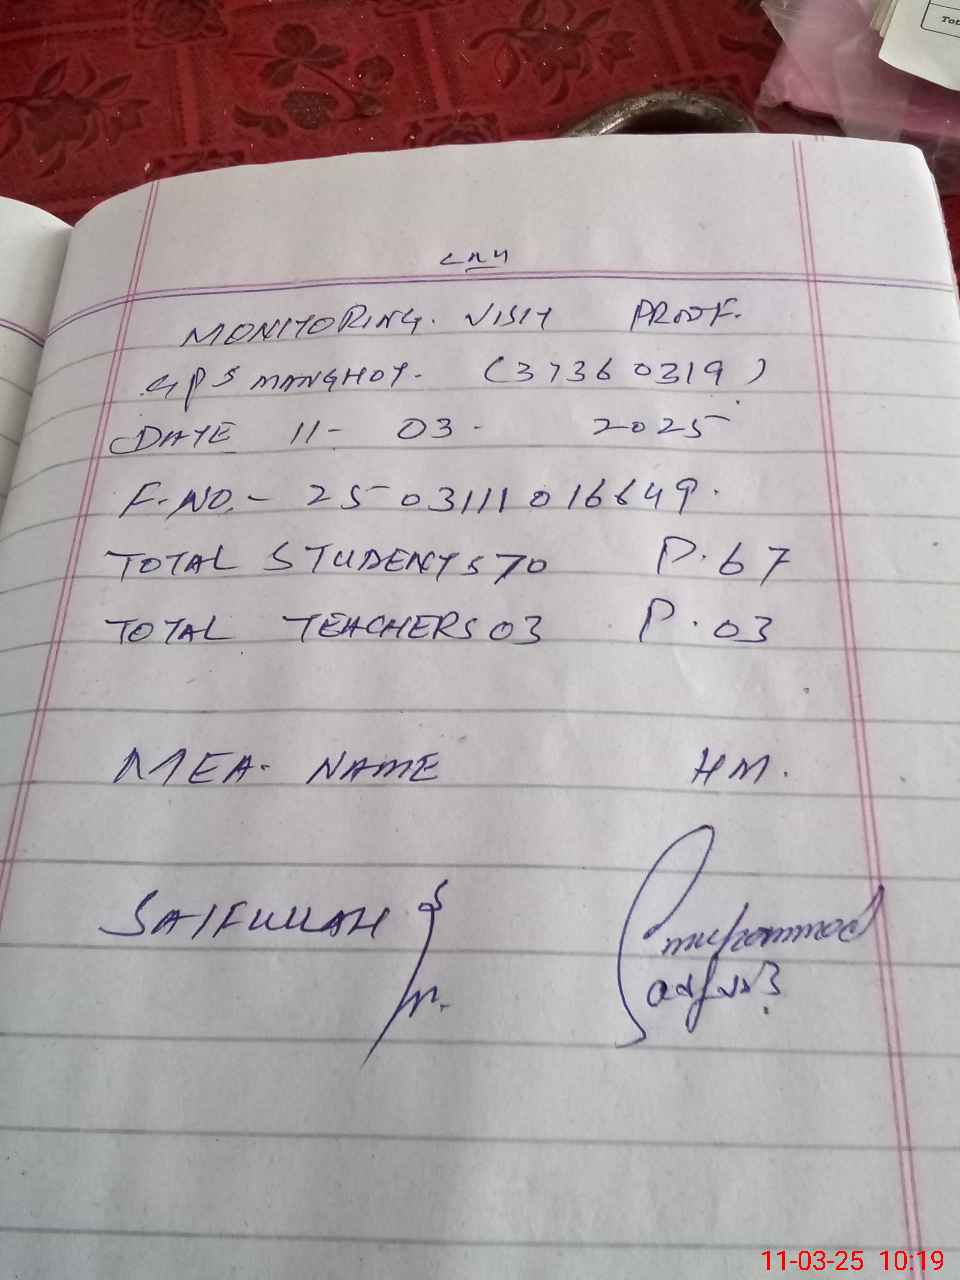 Tot
MONITORING. VISIT PROOF.
GPS MANGHOT. (37360319)
DATE 11- 03- 2025
F.NO.- 2503111016649.
TOTAL STUDENTS 70 P.67
TOTAL TEACHERS 03 P.03
MEA. NAME HM.
SAIFULLAH
muhammad
11-03-25 10:19